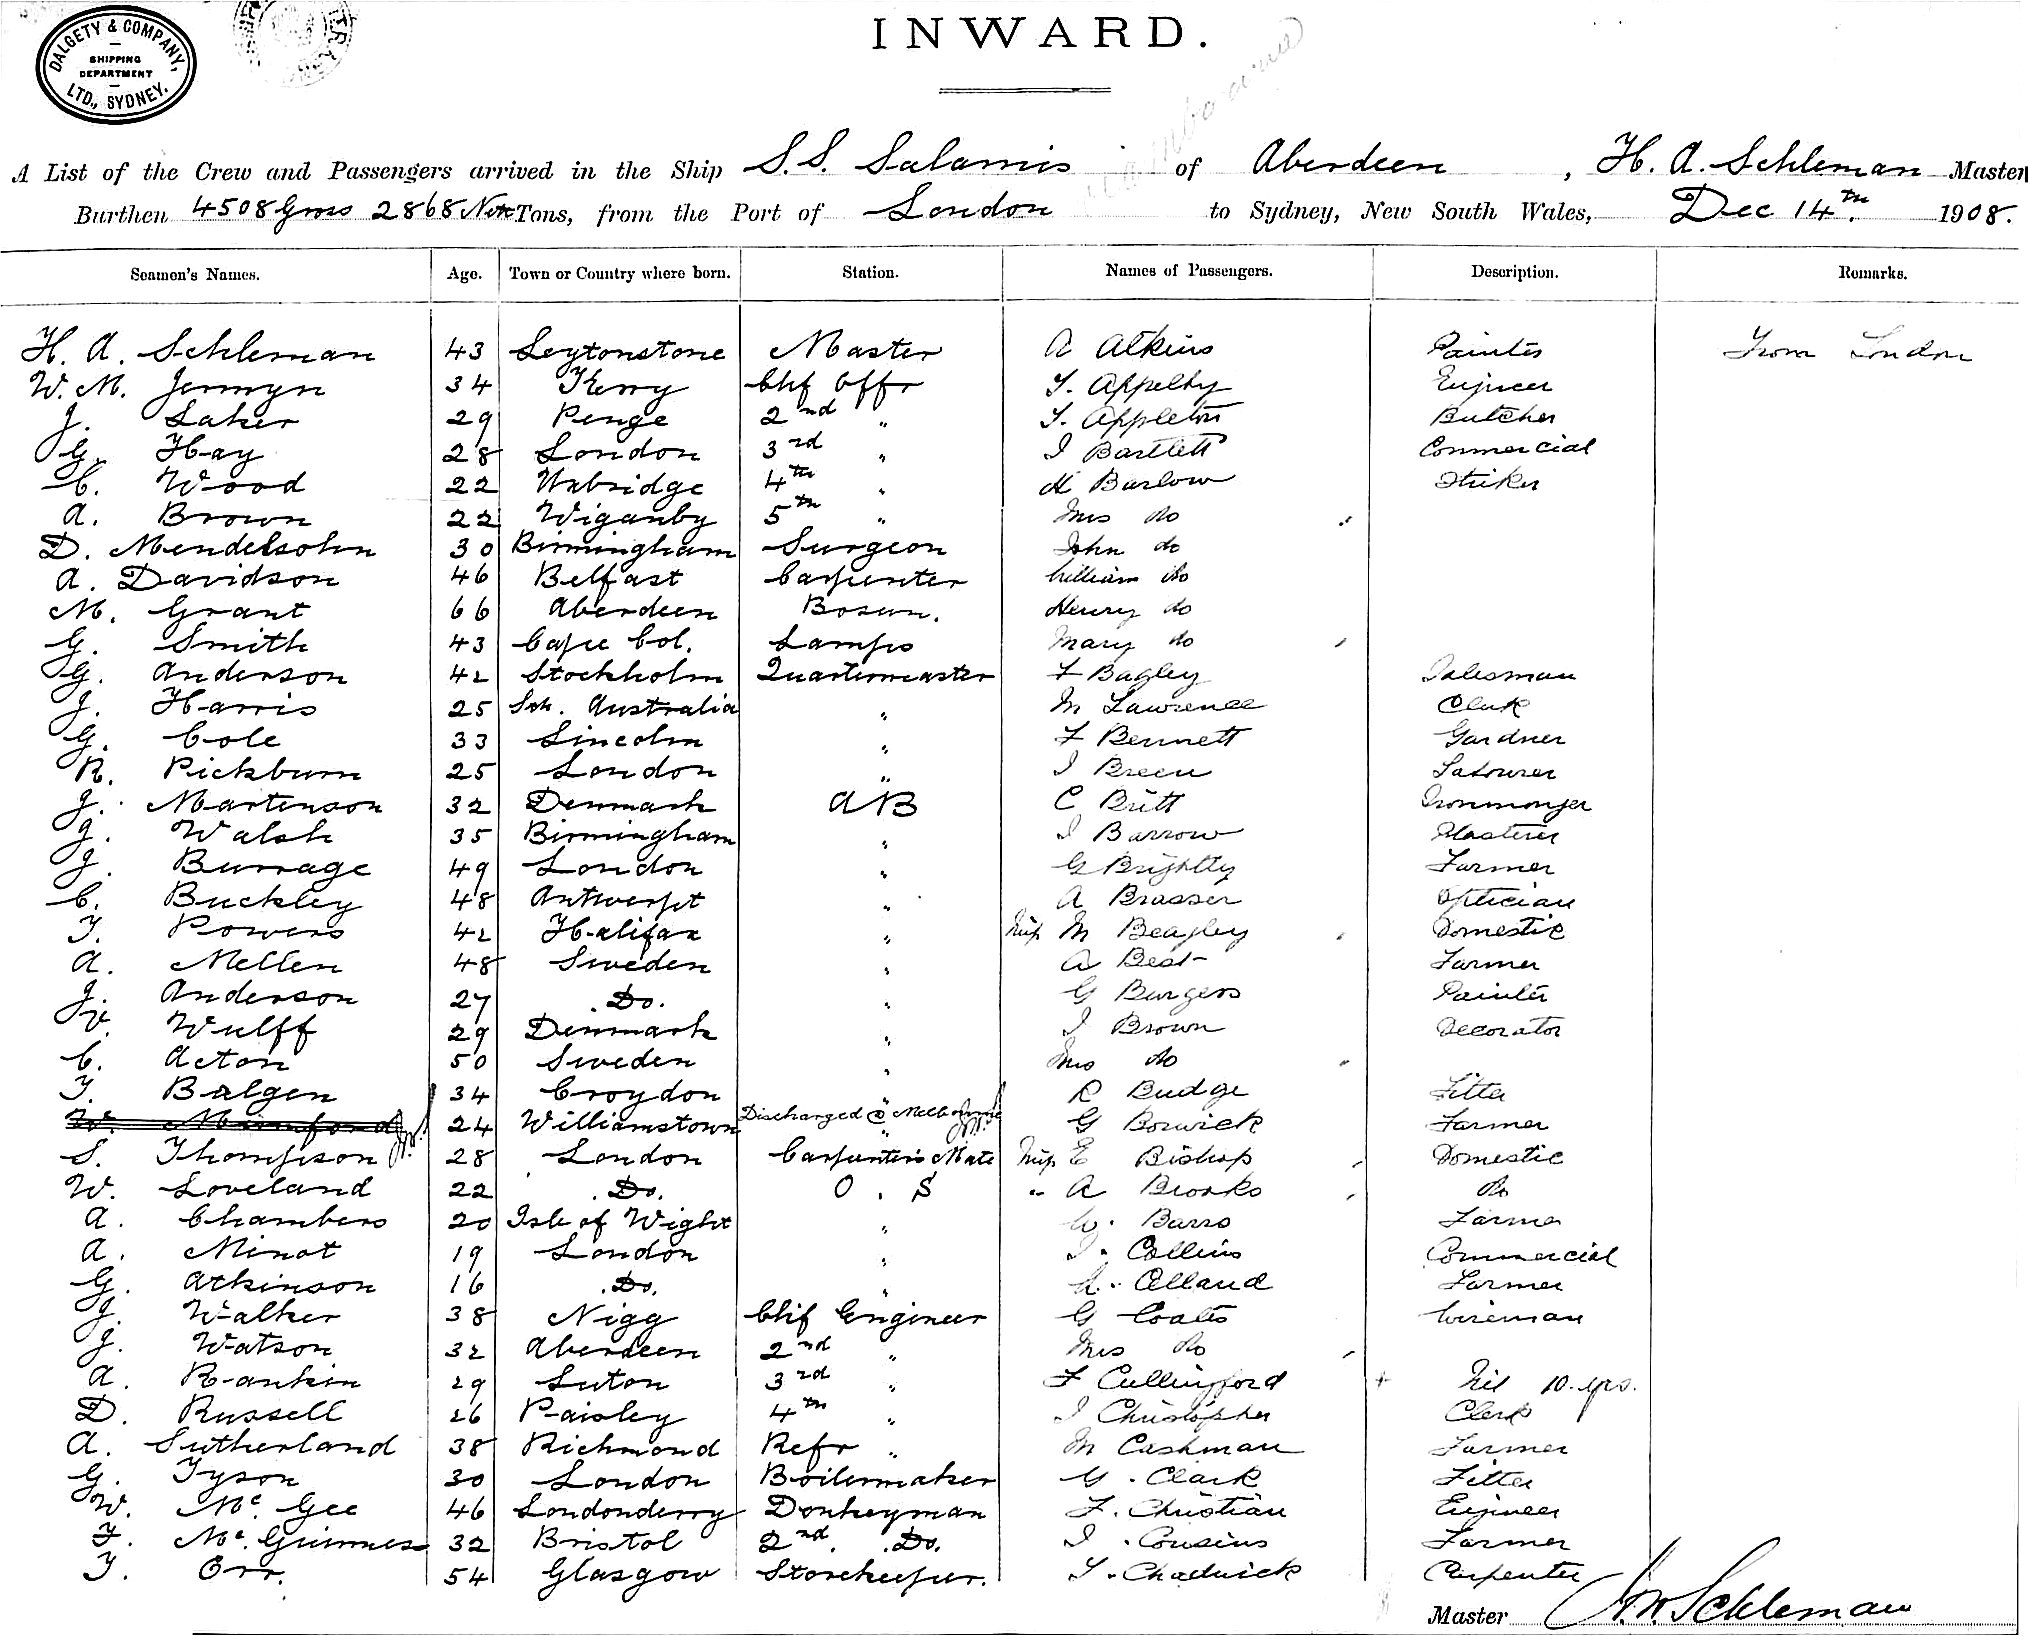 DALGETY & COMPANY,
SHIPPING
DEPARTMENT
LTD., SYDNEY.
INWARD.
A List of the Crew and Passengers arrived in the Ship S.S. Salamis of Aberdeen, H. A. Schleman Master
Burthen 4508 Gross 2868 Nett Tons, from the Port of London to Sydney, New South Wales, Dec 14th. 1908.
Seamen's Names. Age. Town or Country where born. Station. Names of Passengers. Description. Remarks.
H. A. Schleman 43 Leytonstone Master A Atkins Painter From London
W. M. Jermyn 34 Kerry Chf Offr T. Appelby Engineer
J. Laker 29 Penge 2nd " T. Appleton Butcher
G. Hay 28 London 3rd " J Bartlett Commercial
C. Wood 22 Uxbridge 4th " H Barlow Striker
A. Brown 22 Wiganby 5th " Mrs do
D. Mendelsohn 30 Birmingham Surgeon John do
A. Davidson 46 Belfast Carpenter William do
M. Grant 66 Aberdeen Bosun. Henry do
G. Smith 43 Cape Col. Lamps Mary do
G. Anderson 42 Stockholm Quartermaster F Bagley Salesman
J. Harris 25 Sth. Australia " M Lawrence Clerk
G. Cole 33 Lincoln " F Bennett Gardner
R. Pickburn 25 London " J Breen Labourer
J. Martenson 32 Denmark AB C Britt Ironmonger
J. Walsh 35 Birmingham " J Barrow Plasterer
J. Burrage 49 London " G Brightly Farmer
C. Buckley 48 Antwerpt " A Brasser Optician
T. Powers 42 Halifax " Miss M Beagley Domestic
A. Mellen 48 Sweden " A Best Farmer
J. Anderson 27 Do. " G Burgess Painter
V. Wulff 29 Denmark " J Brown Decorator
C. Acton 50 Sweden " Mrs do
T. Balgen 34 Croydon " R Budge Fitter
W. 24 Williamstown Discharged @ Melbourne G Borwick Farmer
S. Thompson 28 London Carpenter's Mate Miss E Bishop Domestic
W. Loveland 22 Do. O. S " A Brooks Do
A. Chambers 20 Isle of Wight " W. Barrs Farmer
A. Minot 19 London " J. Collins Commercial
G. Atkinson 16 Do. " Farmer
J. Walker 38 Nigg Chf Engineer G Coates Wireman
J. Watson 32 Aberdeen 2nd " Mrs Do
A. Rankin 29 Luton 3rd " F Cullingford + Nil 10 yrs.
D. Russell 26 Paisley 4th " J Christopher Clerk
A. Sutherland 38 Richmond Refr " M Cashman Farmer
G. Tyson 30 London Boilermaker G. Clark Fitter
W. Mc Gee 46 Londonderry Donkeyman F. Christian Engineer
F. Mc. Guinness 32 Bristol 2nd. Do. J. Cousins Farmer
T. Orr. 54 Glasgow Storekeeper. T. Chadwick Carpenter
Master H. A. Schleman